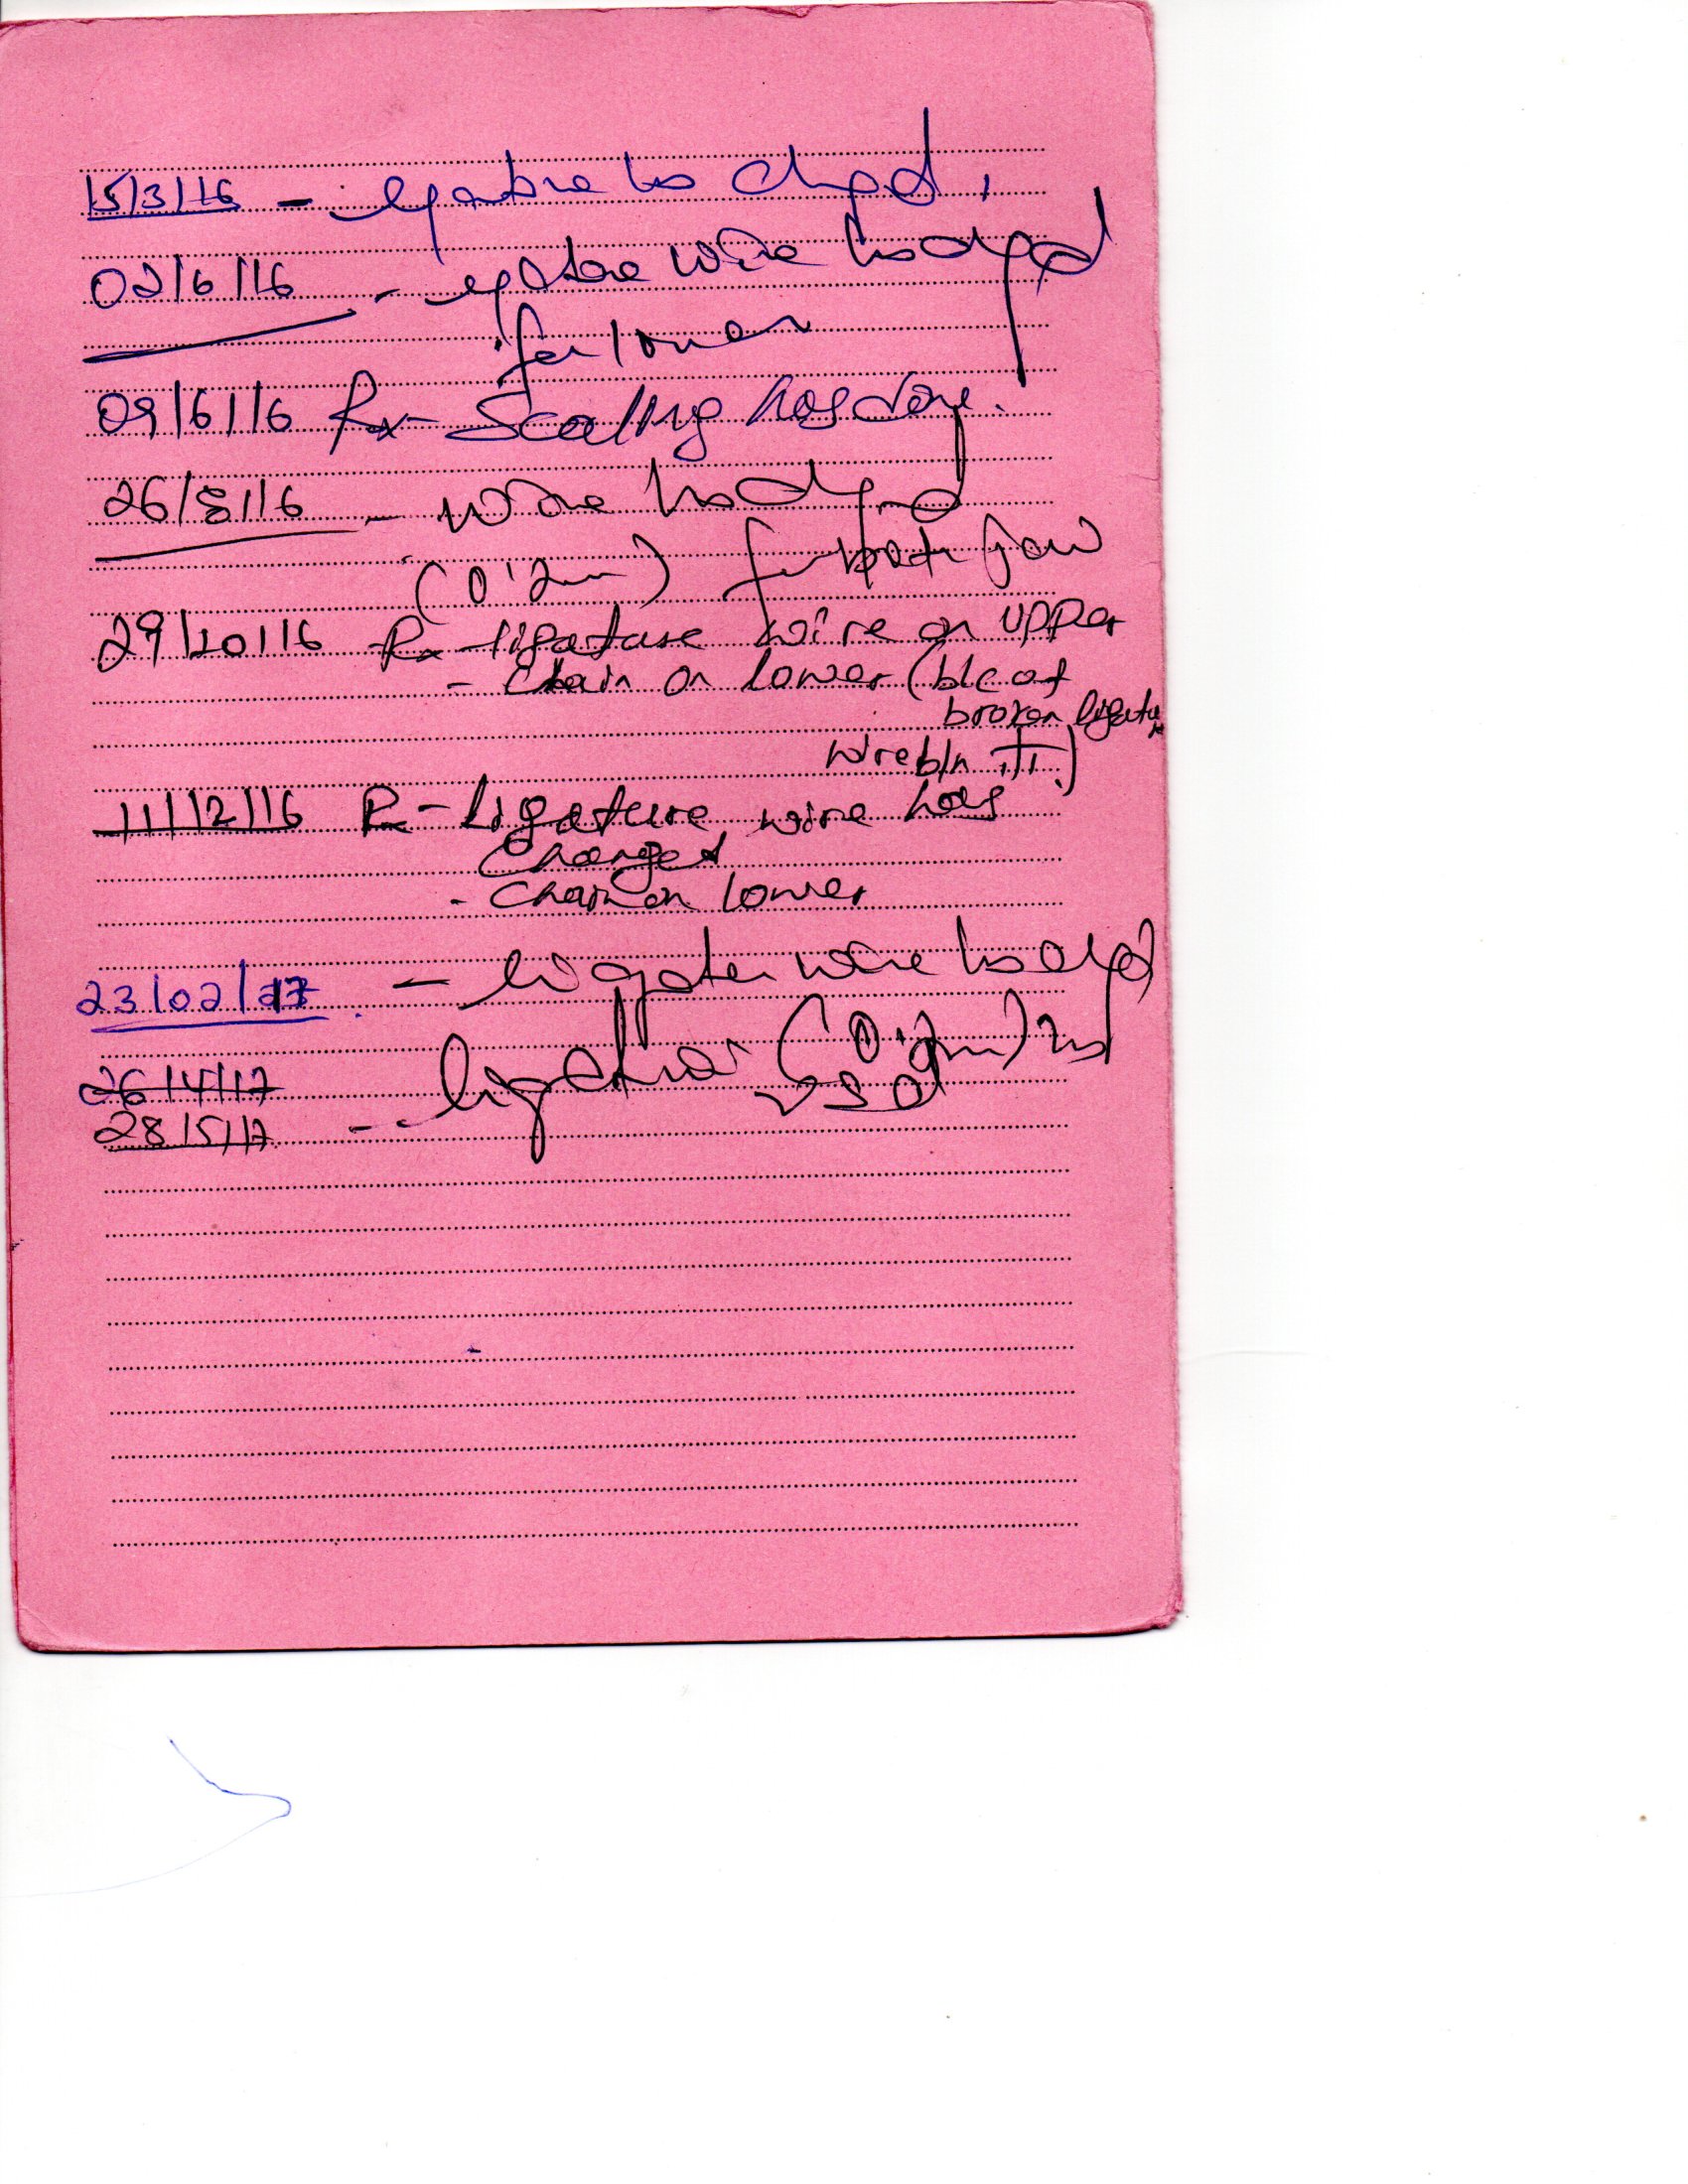 15/3/16 - ligature has chged.
02/6/16 - ligature wire has chged
for lower
09/6/16 Rx - Scalling has done.
26/8/16 - wire has chged
(0'2mm) for both jaw
29/10/16 Rx - ligature wire on upper
- chain on lower (b/c of
broken ligature
wire b/n
11/12/16 Rx - Ligature wire has
changed
- chain on lower
23/02/17 - ligature wire has chgd
26/4/17 ligature (0.2mm) has
28/5/17 -